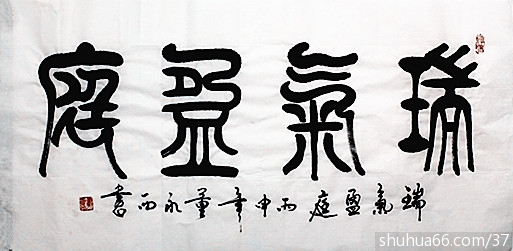 瑞氣盈庭
瑞氣盈庭 丙申年董永西書
shuhua66.com/37